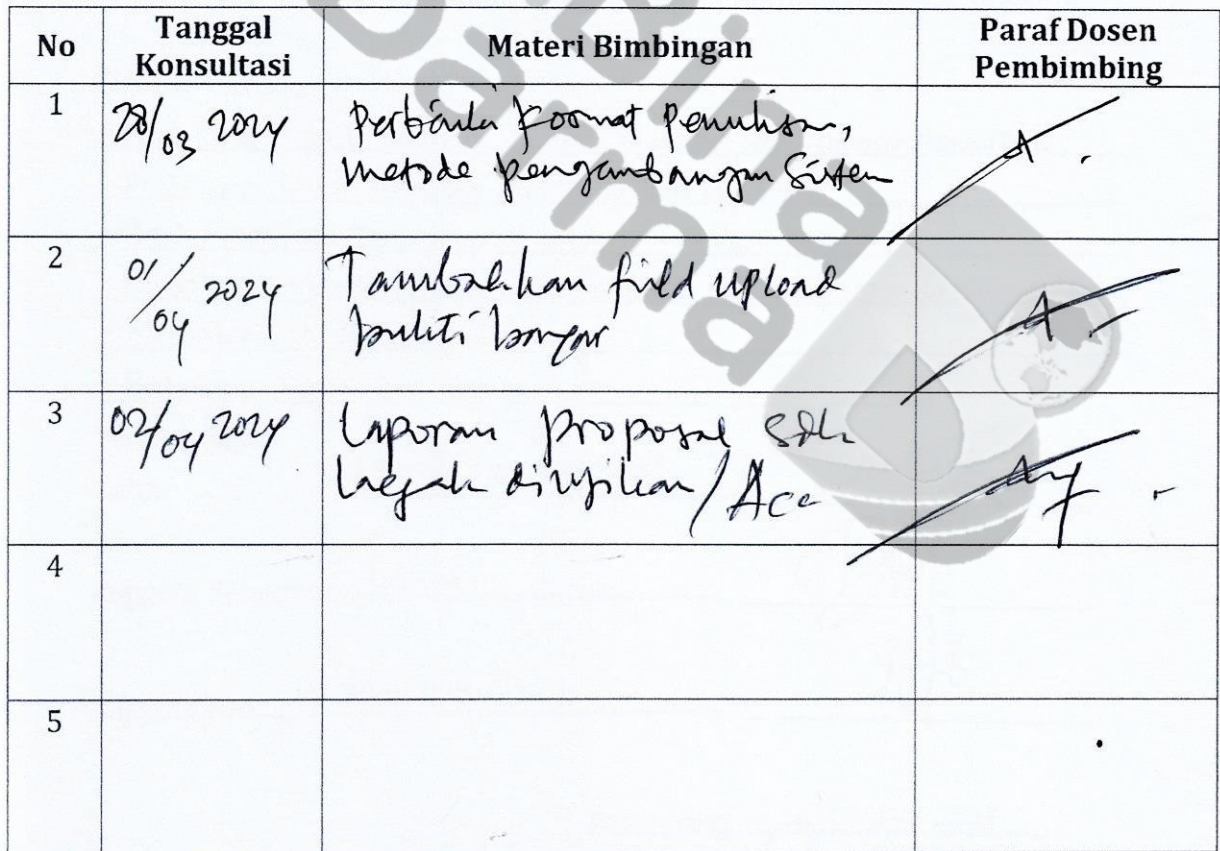 No Tanggal Konsultasi Materi Bimbingan Paraf Dosen Pembimbing
1 28/03 2024 Perbaiki Format Penulisan,
metode pengembangan Sistem
2 01/04 2024 Tambahkan field upload
bukti bayar
3 02/04 2024 Laporan proposal sdh
layak diujikan / Acc
4
5
Bina
Darma